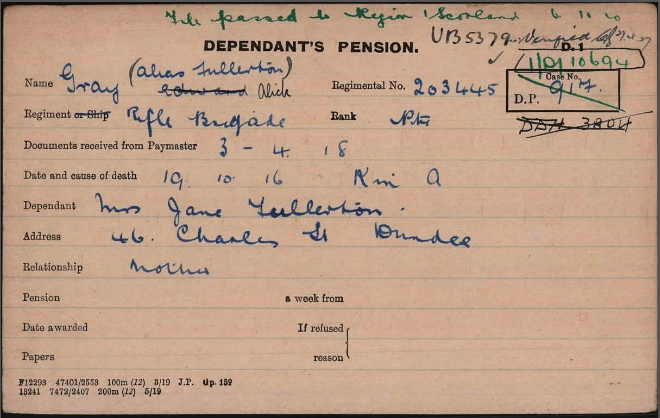 File passed to Region Scotland 6 11 20
DEPENDANT'S PENSION.
UB5379 Verified
D. 1
1/D/10694
Name Gray (alias Fullerton) Edward Alick
Regimental No. 203445
Case No.
D.P. 917.
Regiment or Ship Rifle Brigade Rank Pte
Documents received from Paymaster 3 - 4. 18
Date and cause of death 19 10 16 K in A
Dependant Mrs Jane Fullerton.
Address 46. Charles St Dundee
Relationship Mother
Pension a week from
Date awarded If refused
Papers reason
F12293 47401/2553 100m (12) 3/19 J.P. Gp. 159
13241 7472/2407 200m (12) 5/19